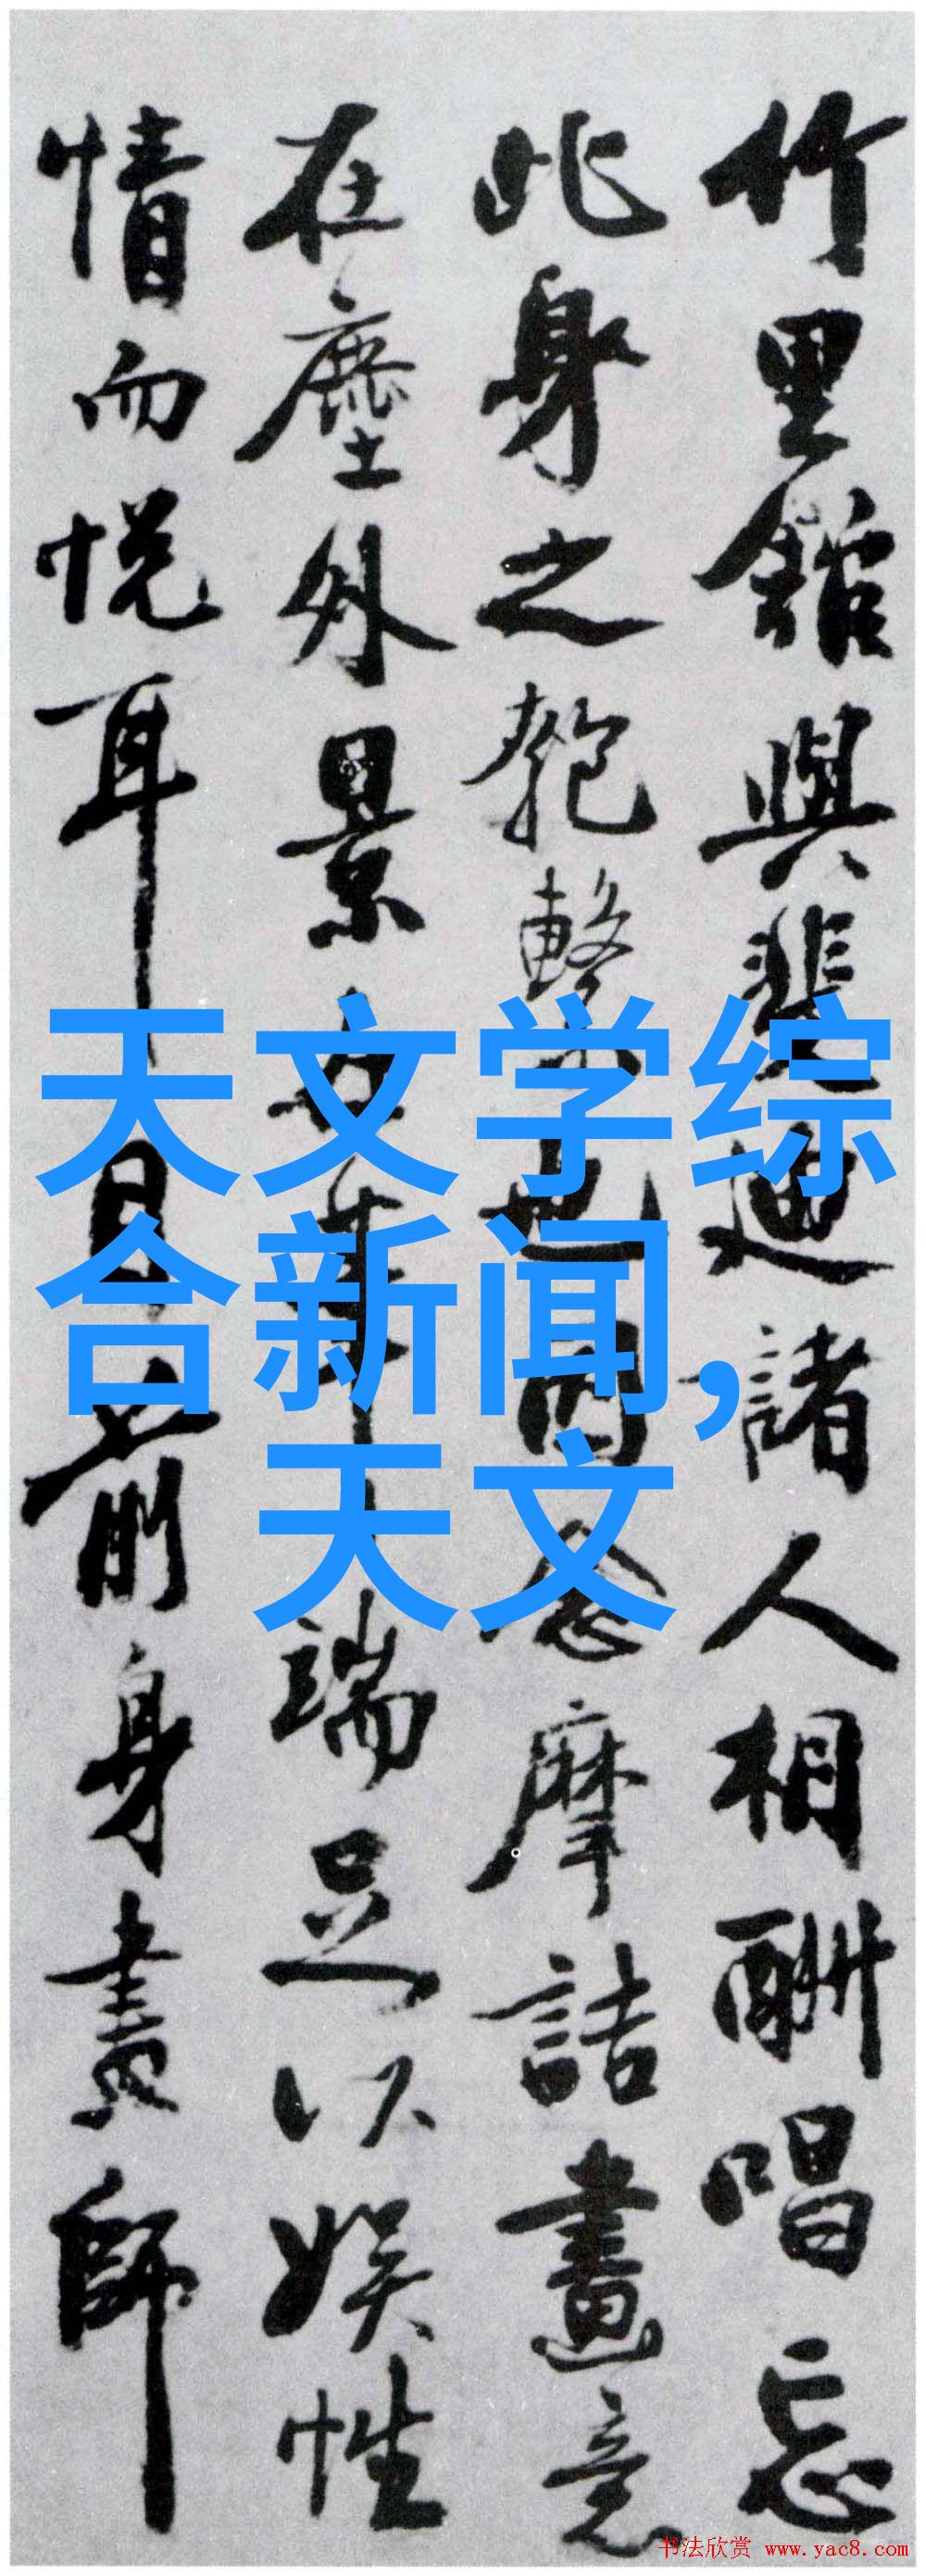 竹里館與裴迪諸人相酬唱忘
此身之匏繫也因念摩詰畫意
在塵外景在筆端足以娛性
情而悅耳目前身畫師
天文学综
合新闻,
天文
书法欣赏 www.yac8.com